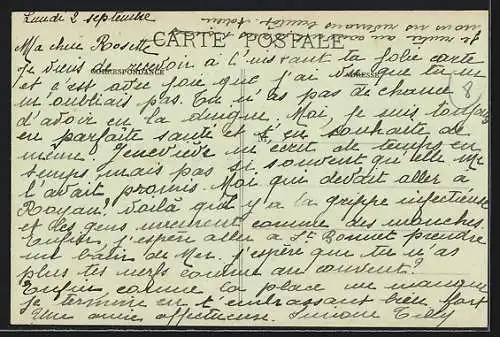 Lundi 2 septembre
CARTE POSTALE
CORRESPONDANCE
8
Ma chère Rosette
Je viens de recevoir à l'instant ta jolie carte
et c'est avec joie que j'ai vu que tu ne
m'oubliais pas. Tu n'as pas de chance
d'avoir eu la dingue. Moi, je suis toujours
en parfaite santé et t'en souhaite de
même. Geneviève m'écrit de temps en
temps, mais pas si souvent qu'elle me
l'avait promis. Moi qui devait aller à
Royan! Voilà qu'il y a la grippe infectieuse
et les gens meurent comme des mouches.
Enfin, j'espère aller à St Bonnet prendre
un bain de Mer. J'espère que tu n'as
plus tes nerfs comme au couvent?
Enfin comme la place me manque
je termine en t'embrassant bien fort
Une amie affectueuse. Simone